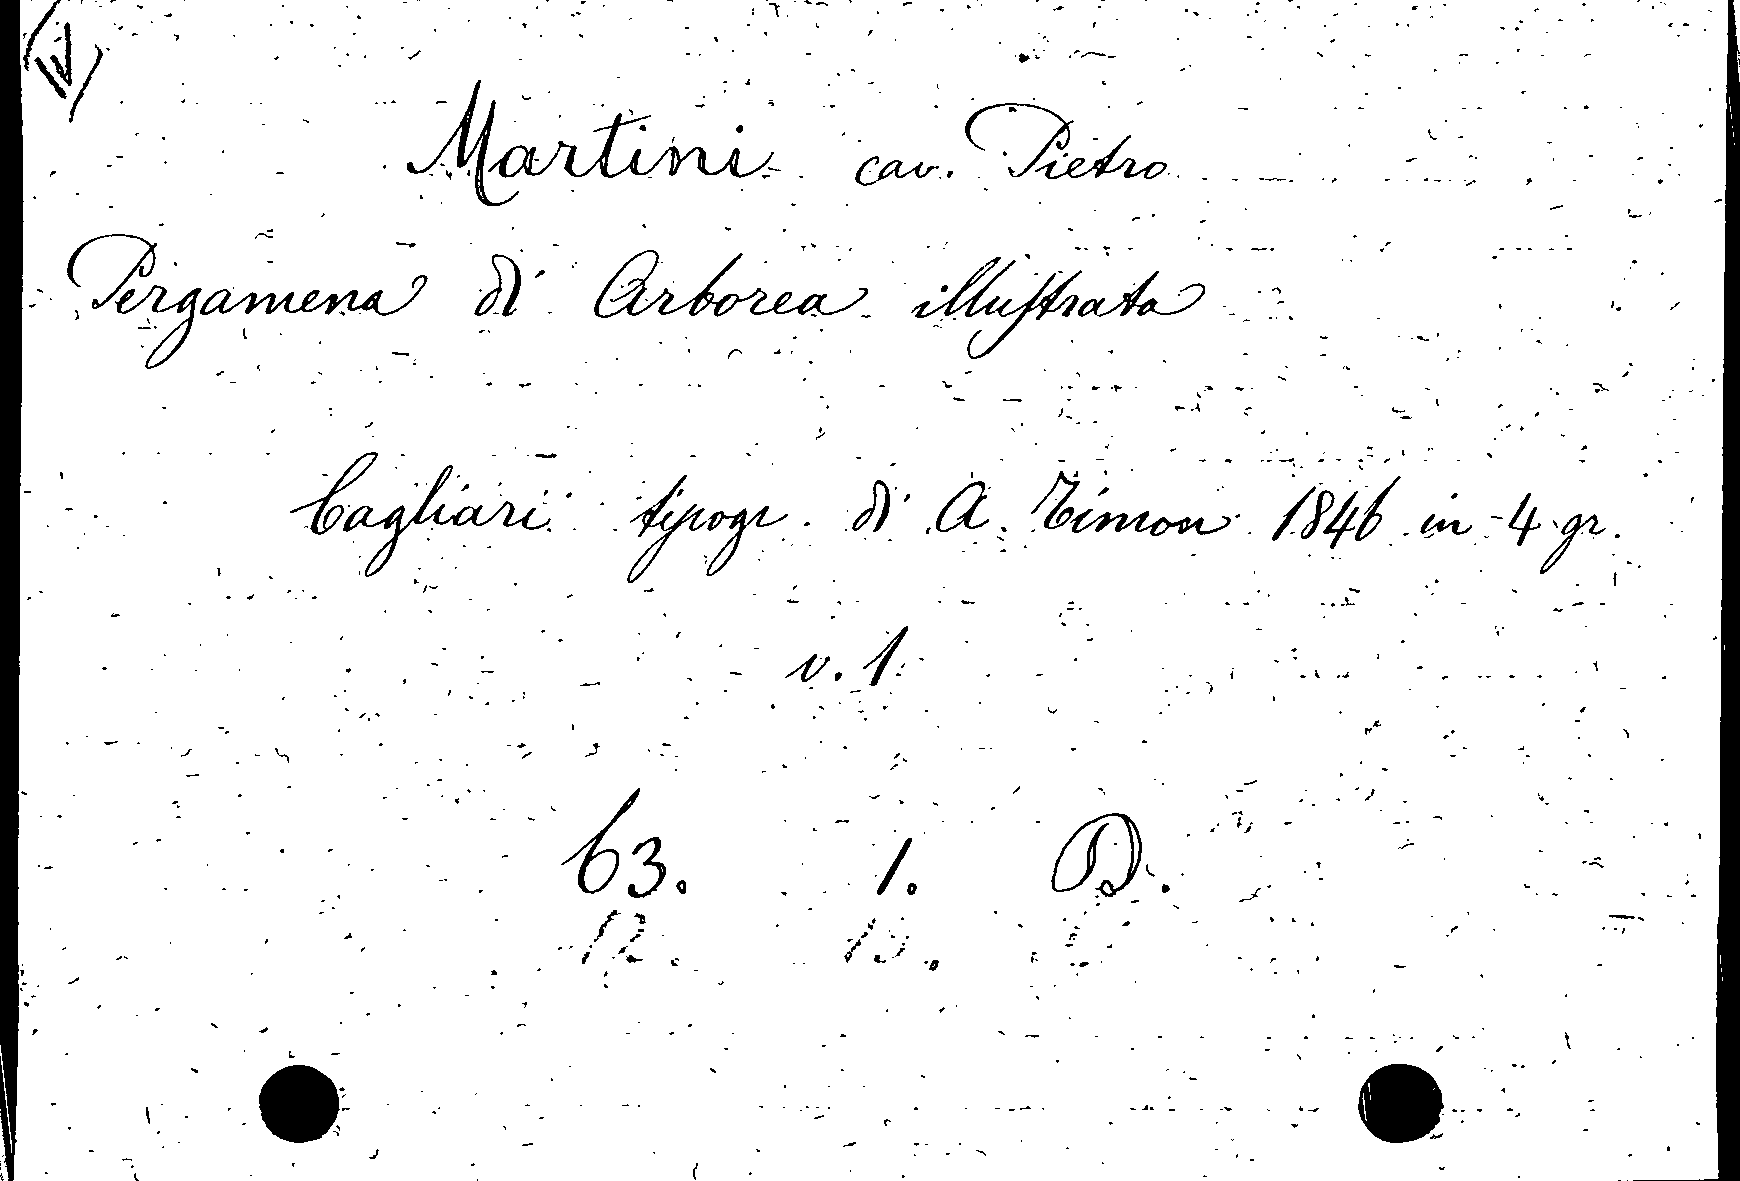 Martini cav. Pietro
Pergamena di Arborea illustrata
Cagliari tipogr. di A. Timon 1846 in 4 gr.
v. 1.
63. 1. D.
12. 13.